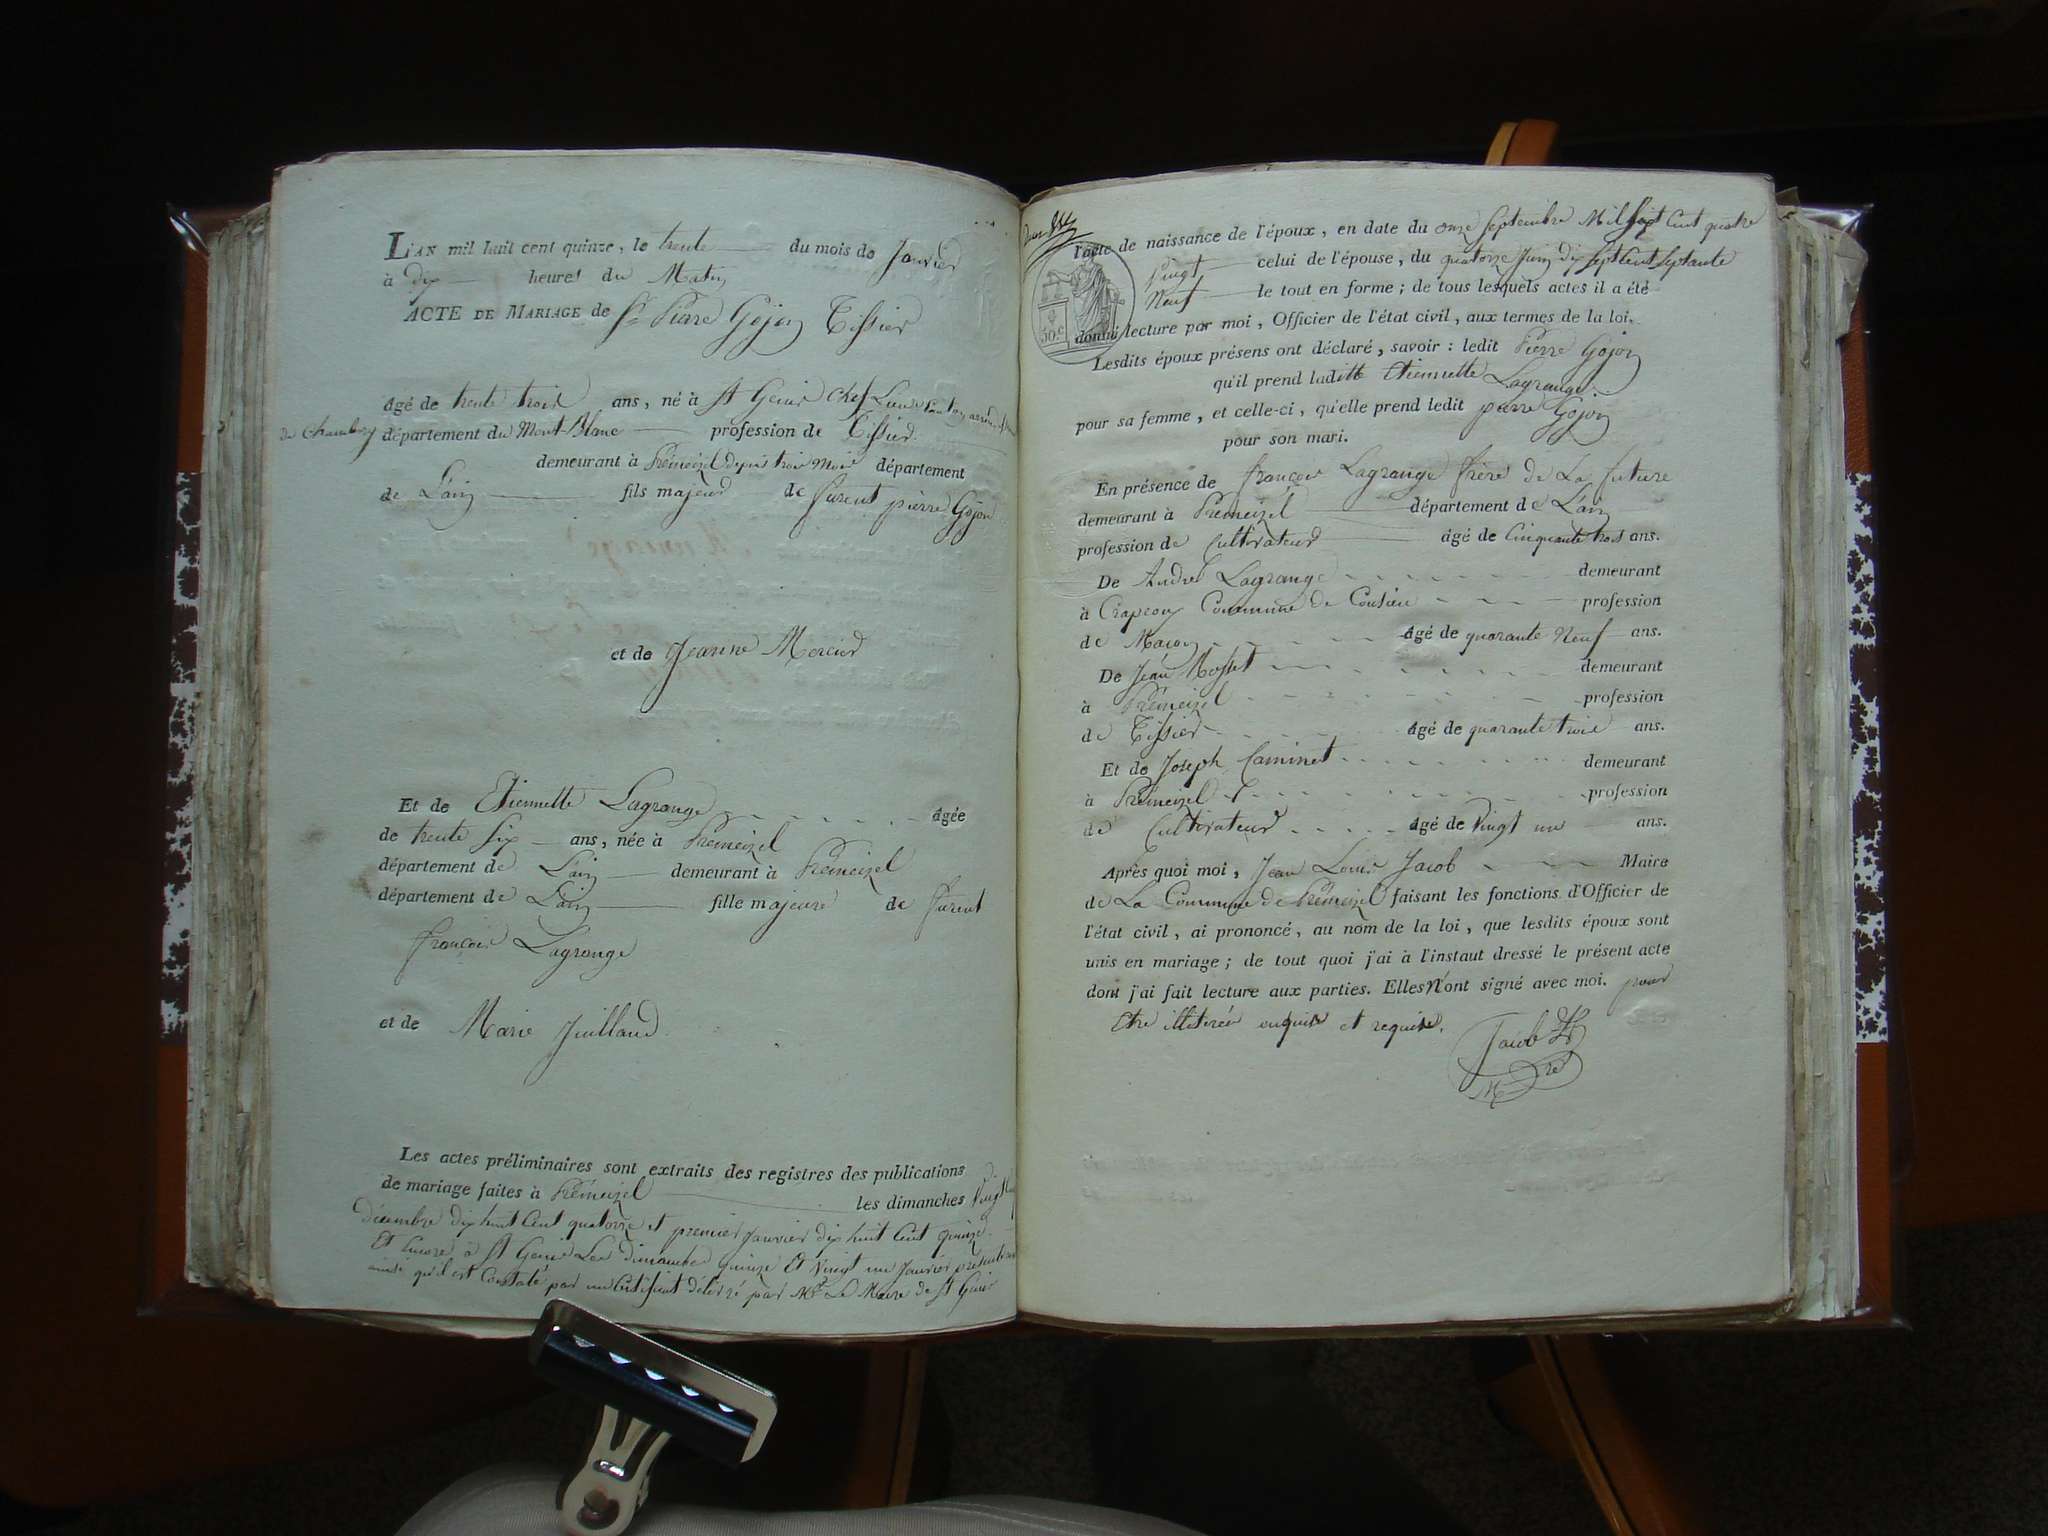 L'AN mil huit cent quinze, le trente du mois de Janvier
à dix heures du Matin
ACTE DE MARIAGE de Sr Piare Gojon Tissier
âgé de trente trois ans, né à St Genis Chef Lieu de Canton
de Chambery département du Mont-Blanc profession de Tissier
demeurant à Prémeizel depuis trois Mois département
de L'ain fils majeur de furent pierre Gojon
et de Jeanne Mercier
Et de Etiennette Lagrange âgée
de trente six ans, née à Prémeizel
département de L'ain demeurant à Prémeizel
département de L'ain fille majeure de furent
françois Lagrange
et de Marie Juilland
Les actes préliminaires sont extraits des registres des publications
de mariage faites à Prémeizel les dimanches Vingt
décembre dix huit Cent quatorze et premier Janvier dix huit Cent quinze
Et Encore à St Genis Les dimanches quinze Et Vingt un Janvier présent
ainsi qu'il est Constaté par un Certificat délivré par Mr Le Maire de St Genis
l'acte de naissance de l'époux, en date du onze Septembre Mil Sept Cent quatre
Vingt celui de l'épouse, du quatorze Juin dix sept Cent Septante
Neuf le tout en forme; de tous lesquels actes il a été
50 c
donné lecture par moi, Officier de l'état civil, aux termes de la loi.
Lesdits époux présens ont déclaré, savoir: ledit Pierre Gojon
qu'il prend laditte Etiennette Lagrange
pour sa femme, et celle-ci, qu'elle prend ledit pierre Gojon
pour son mari.
En présence de françois Lagrange frère de La future
demeurant à Prémeizel département de L'ain
profession de Cultivateur âgé de Cinquante trois ans.
De André Lagrange demeurant
à Crapeou Commune de Consieu profession
de Maçon âgé de quarante Neuf ans.
De Jean Mosset demeurant
à Prémeizel profession
de Tissier âgé de quarante trois ans.
Et de Joseph Caminet demeurant
à Prémeizel profession
de Cultivateur âgé de Vingt un ans.
Après quoi moi, Jean Louis Jacob Maire
de La Commune de Prémeizel faisant les fonctions d'Officier de
l'état civil, ai prononcé, au nom de la loi, que lesdits époux sont
unis en mariage; de tout quoi j'ai à l'instant dressé le présent acte
dont j'ai fait lecture aux parties. Elles N'ont signé avec moi. pour
Etre illitérés enquis et requis.
Jacob
Mre